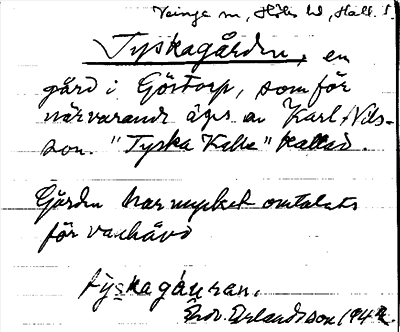 Veinge sn, Höks hd, Hall. l.
Tyskagården, en
gård i Göstorp, som för
närvarande äges av Karl Nils-
son. "Tyska Kalle" kallad.
Gården har mycket omtalats
för vanhävd
Tyskagåuran.
Edv. Erlandsson 1942.